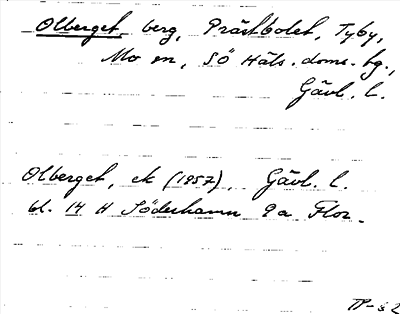 Olberget, berg, Prästbolet, Tyby,
Mo sn, Sö Häls. doms. tg.,
Gävl. l.
Olberget, ek (1957), Gävl. l.
bl. 14 H Söderhamn 9a Flor.